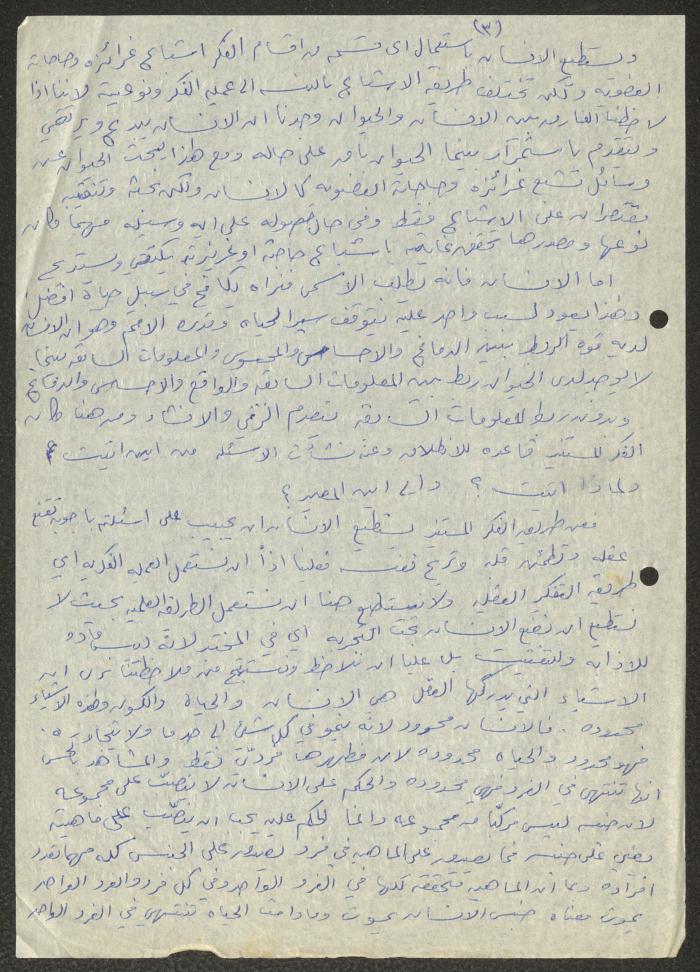 (٣)
ويستطيع الانسان باستعمال اي قسم من اقسام الفكر اشباع غرائزه وحاجاته
العضويه ولكن تختلف طريقة الاشباع بالنسبه الى عملية الفكر ونوعيته لاننا اذا
لاحظنا الفارق بين الانسان والحيوان وجدنا ان الانسان يبدع ويرتقي
ويتقدم باستمرار بينما الحيوان باق على حاله ومع هذا يبحث الحيوان عن
وسائل تشبع غرائزه وحاجاته العضويه كالانسان ولكن بحثه وتنقيبه
يقتصران على الاشباع فقط وفي حال حصوله على ايه وسيله مهما كان
نوعها ومصدرها تحقق غايته باشباع حاجته او غريزته يكتفي ويستريح
اما الانسان فانه يطلب الاسمى فنراه يكافح في سبيل حياة افضل
وهذا يعود لسبب واحد عليه يتوقف سير الحياه وتدرج الامم وهو ان الانسان
لديه قوه الربط بين الدماغ والاحساس والمحسوس والمعلومات السابقه بينما
لا يوجد لدى الحيوان ربط بين المعلومات السابقه والواقع والاحساس والدماغ
وبدون ربط المعلومات السابقه ينعدم الرقي والانشاء ومن هنا كان
الفكر المستنير قاعده للانطلاق وعنه نشأت الاسئله من اين اتيت ؟
ولماذا اتيت ؟ والى اين المصير ؟
فعن طريق الفكر المستنير يستطيع الانسان ان يجيب على اسئلته باجوبه تقنع
عقله وتطمئن قلبه وتريح نفسه فعلينا اذاً ان نستعمل العمليه الفكريه اي
طريقة التفكير العقليه ولا نستطيع هنا ان نستعمل الطريقة العلميه بحيث لا
نستطيع ان نضع الانسان تحت التجربه اي في المختبر لانه ليس ماده
للاذابه والتفتيت بل علينا ان نلاحظ ونستنتج من ملاحظتنا نرى ان
الاشياء التي يدركها العقل هي الانسان والحياة والكون وهذه الاشياء
محدوده . فالانسان محدود لانه ينمو في كل شيء الى حد ما ولا يتجاوزه
فهو محدود والحياه محدوده لان مظهرها فرديّ فقط والمشاهد بالحس
انها تنتهي في الفرد فهي محدوده والحكم على الانسان لا ينصبّ على مجموعه
لان جنسه ليس مركباً من مجموعه وانما الحكم عليه يجب ان ينصّب على ماهيته
يعني على جنسه فما يصدق على الماهيه في فرد يصدق على الجنس كله مهما تعدد
افراده وبما ان الماهيه متحققه كلها في الفرد الواحد وفي كل فرد والفرد الواحد
يموت معناه جنس الانسان يموت وما دامت الحياه تنتهي في الفرد الواحد